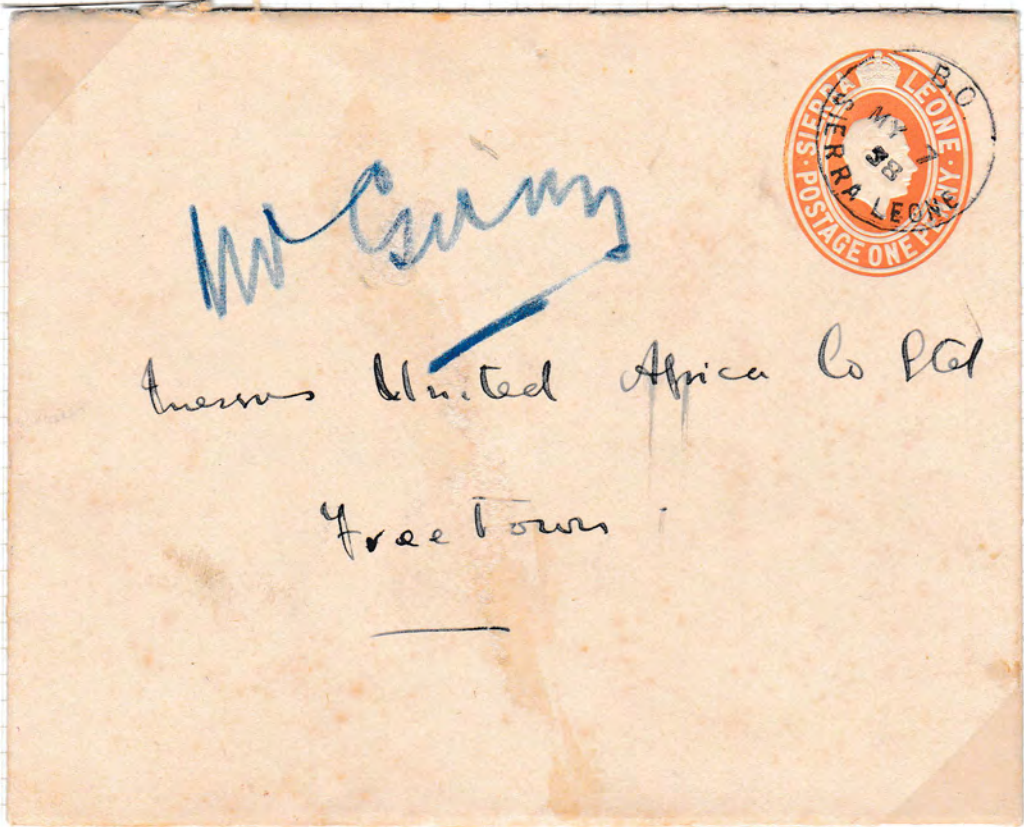 SIERRA LEONE
POSTAGE ONE PENNY
BO
MY 7
38
SIERRA LEONE
Mr
Messrs United Africa Co Ltd
Freetown